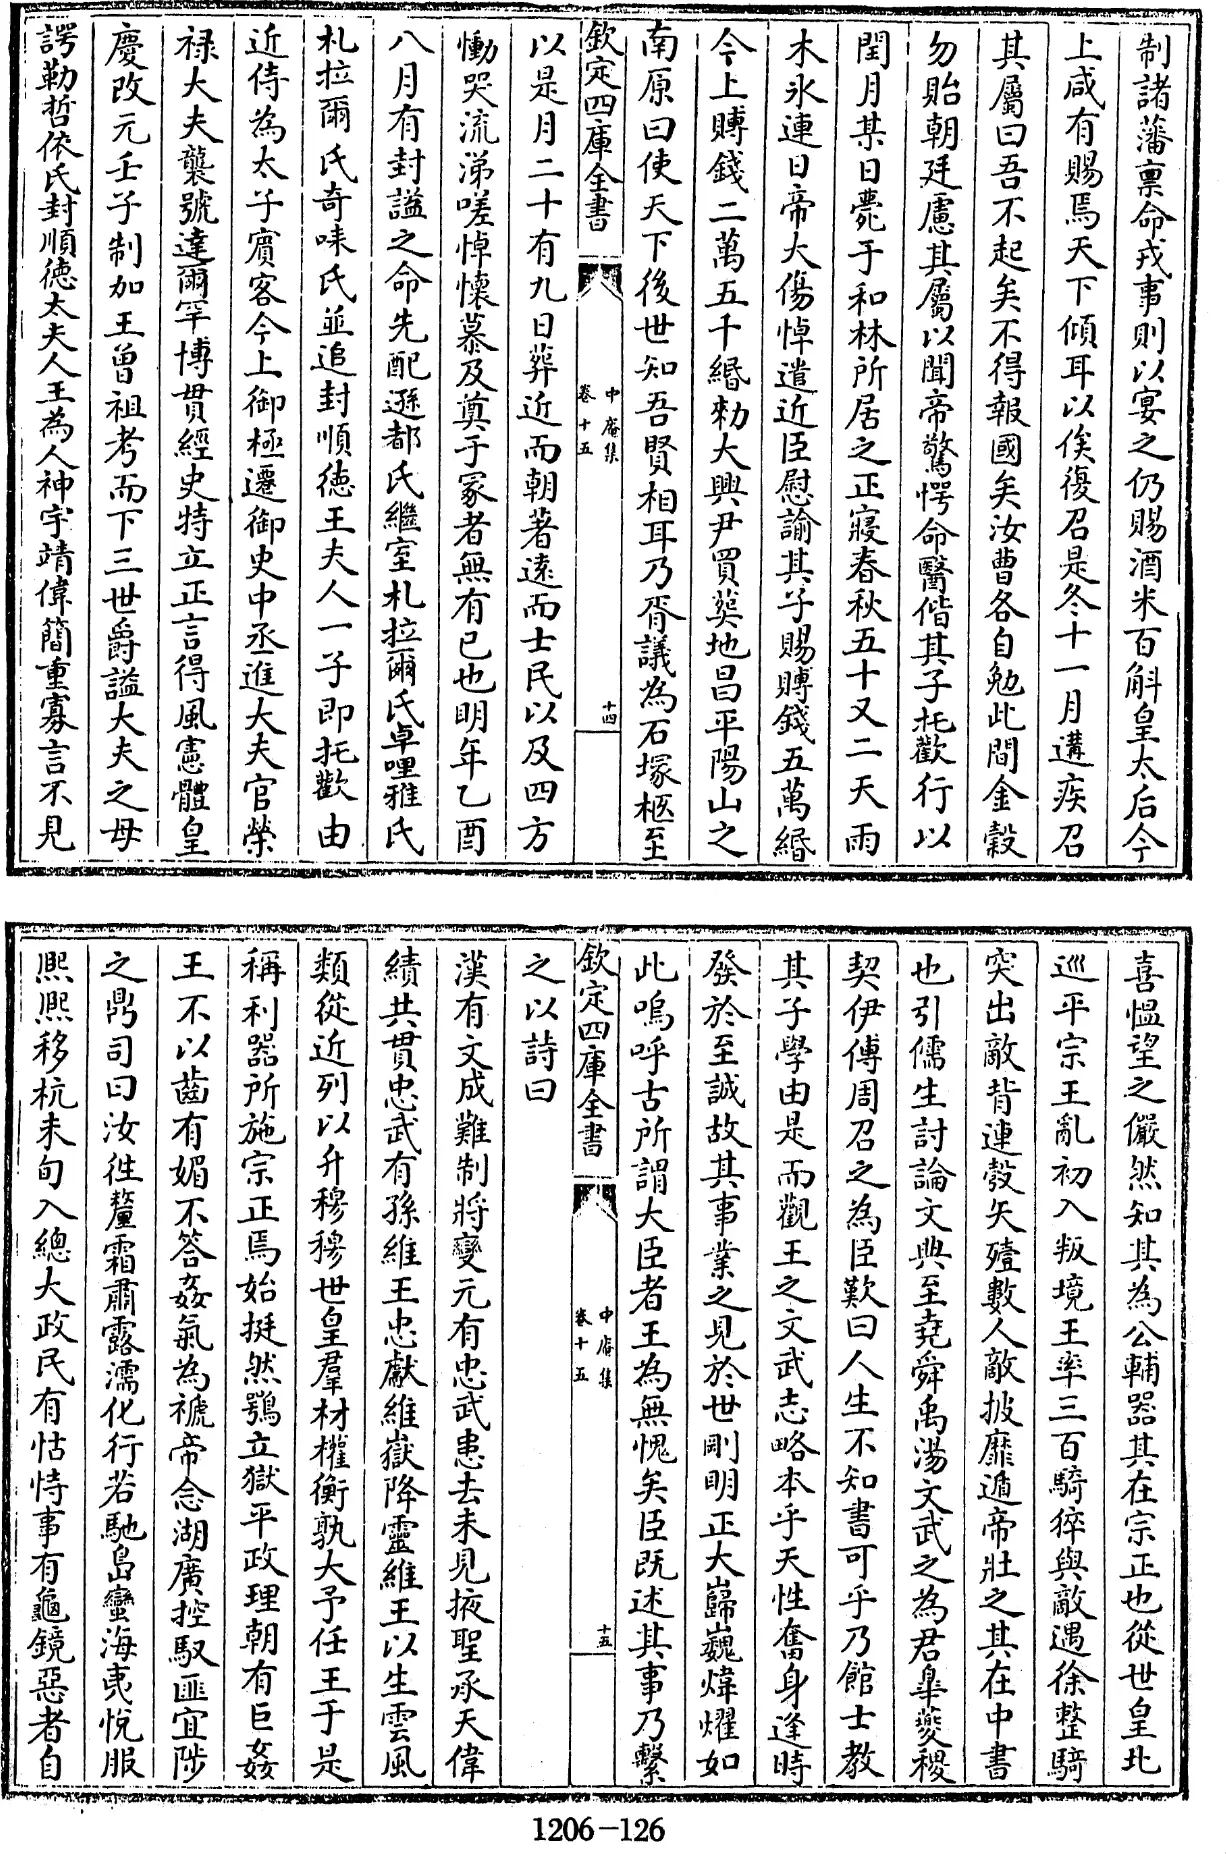 制諸藩禀命戎事則以宴之仍賜酒米百斛皇太后今
上咸有賜焉天下傾耳以俟復召是冬十一月遘疾召
其屬曰吾不起矣不得報國矣汝曹各自勉此間金穀
勿貽朝廷慮其屬以聞帝驚愕命醫偕其子托歡行以
閏月某日薨于和林所居之正寢春秋五十又二天雨
木氷連日帝大傷悼遣近臣慰諭其子賜賻錢五萬緡
今上賻錢二萬五千緡勅大興尹買葬地昌平陽山之
南原曰使天下後世知吾賢相耳乃胥議為石塚柩至
欽定四庫全書
中庵集
卷十五
十四
以是月二十有九日葬近而朝著遠而士民以及四方
慟哭流涕嗟悼懷慕及奠于冢者無有已也明年乙酉
八月有封謚之命先配遜都氏繼室札拉爾氏卓哩雅氏
札拉爾氏奇味氏並追封順徳王夫人一子即托歡由
近侍為太子賓客今上御極遷御史中丞進大夫官榮
禄大夫襲號達爾罕博貫經史特立正言得風憲體皇
慶改元壬子制加王曾祖考而下三世爵謚大夫之母
諤勒哲依氏封順徳太夫人王為人神宇靖偉簡重寡言不見
喜愠望之儼然知其為公輔器其在宗正也從世皇北
巡平宗王亂初入叛境王率三百騎猝與敵遇徐整騎
突出敵背連彀矢殪數人敵披靡遁帝壯之其在中書
也引儒生討論文典至堯舜禹湯文武之為君臯夔稷
契伊傅周召之為臣歎曰人生不知書可乎乃館士教
其子學由是而觀王之文武志略本乎天性奮身逢時
發於至誠故其事業之見於世剛明正大巋巍煒燿如
此嗚呼古所謂大臣者王為無愧矣臣既述其事乃繫
欽定四庫全書
中庵集
卷十五
十五
之以詩曰
漢有文成難制將變元有忠武患去未見掖聖承天偉
績共貫忠武有孫維王忠獻維嶽降靈維王以生雲風
類從近列以升穆穆世皇羣材權衡孰大予任王于是
稱利器所施宗正焉始挺然鶚立獄平政理朝有巨姦
王不以齒有媚不答姦氣為褫帝念湖廣控馭匪宜陟
之鼎司曰汝徃釐霜肅露濡化行若馳島蠻海夷悦服
熙熙移杭未旬入總大政民有怙恃事有龜鏡惡者自
1206-126